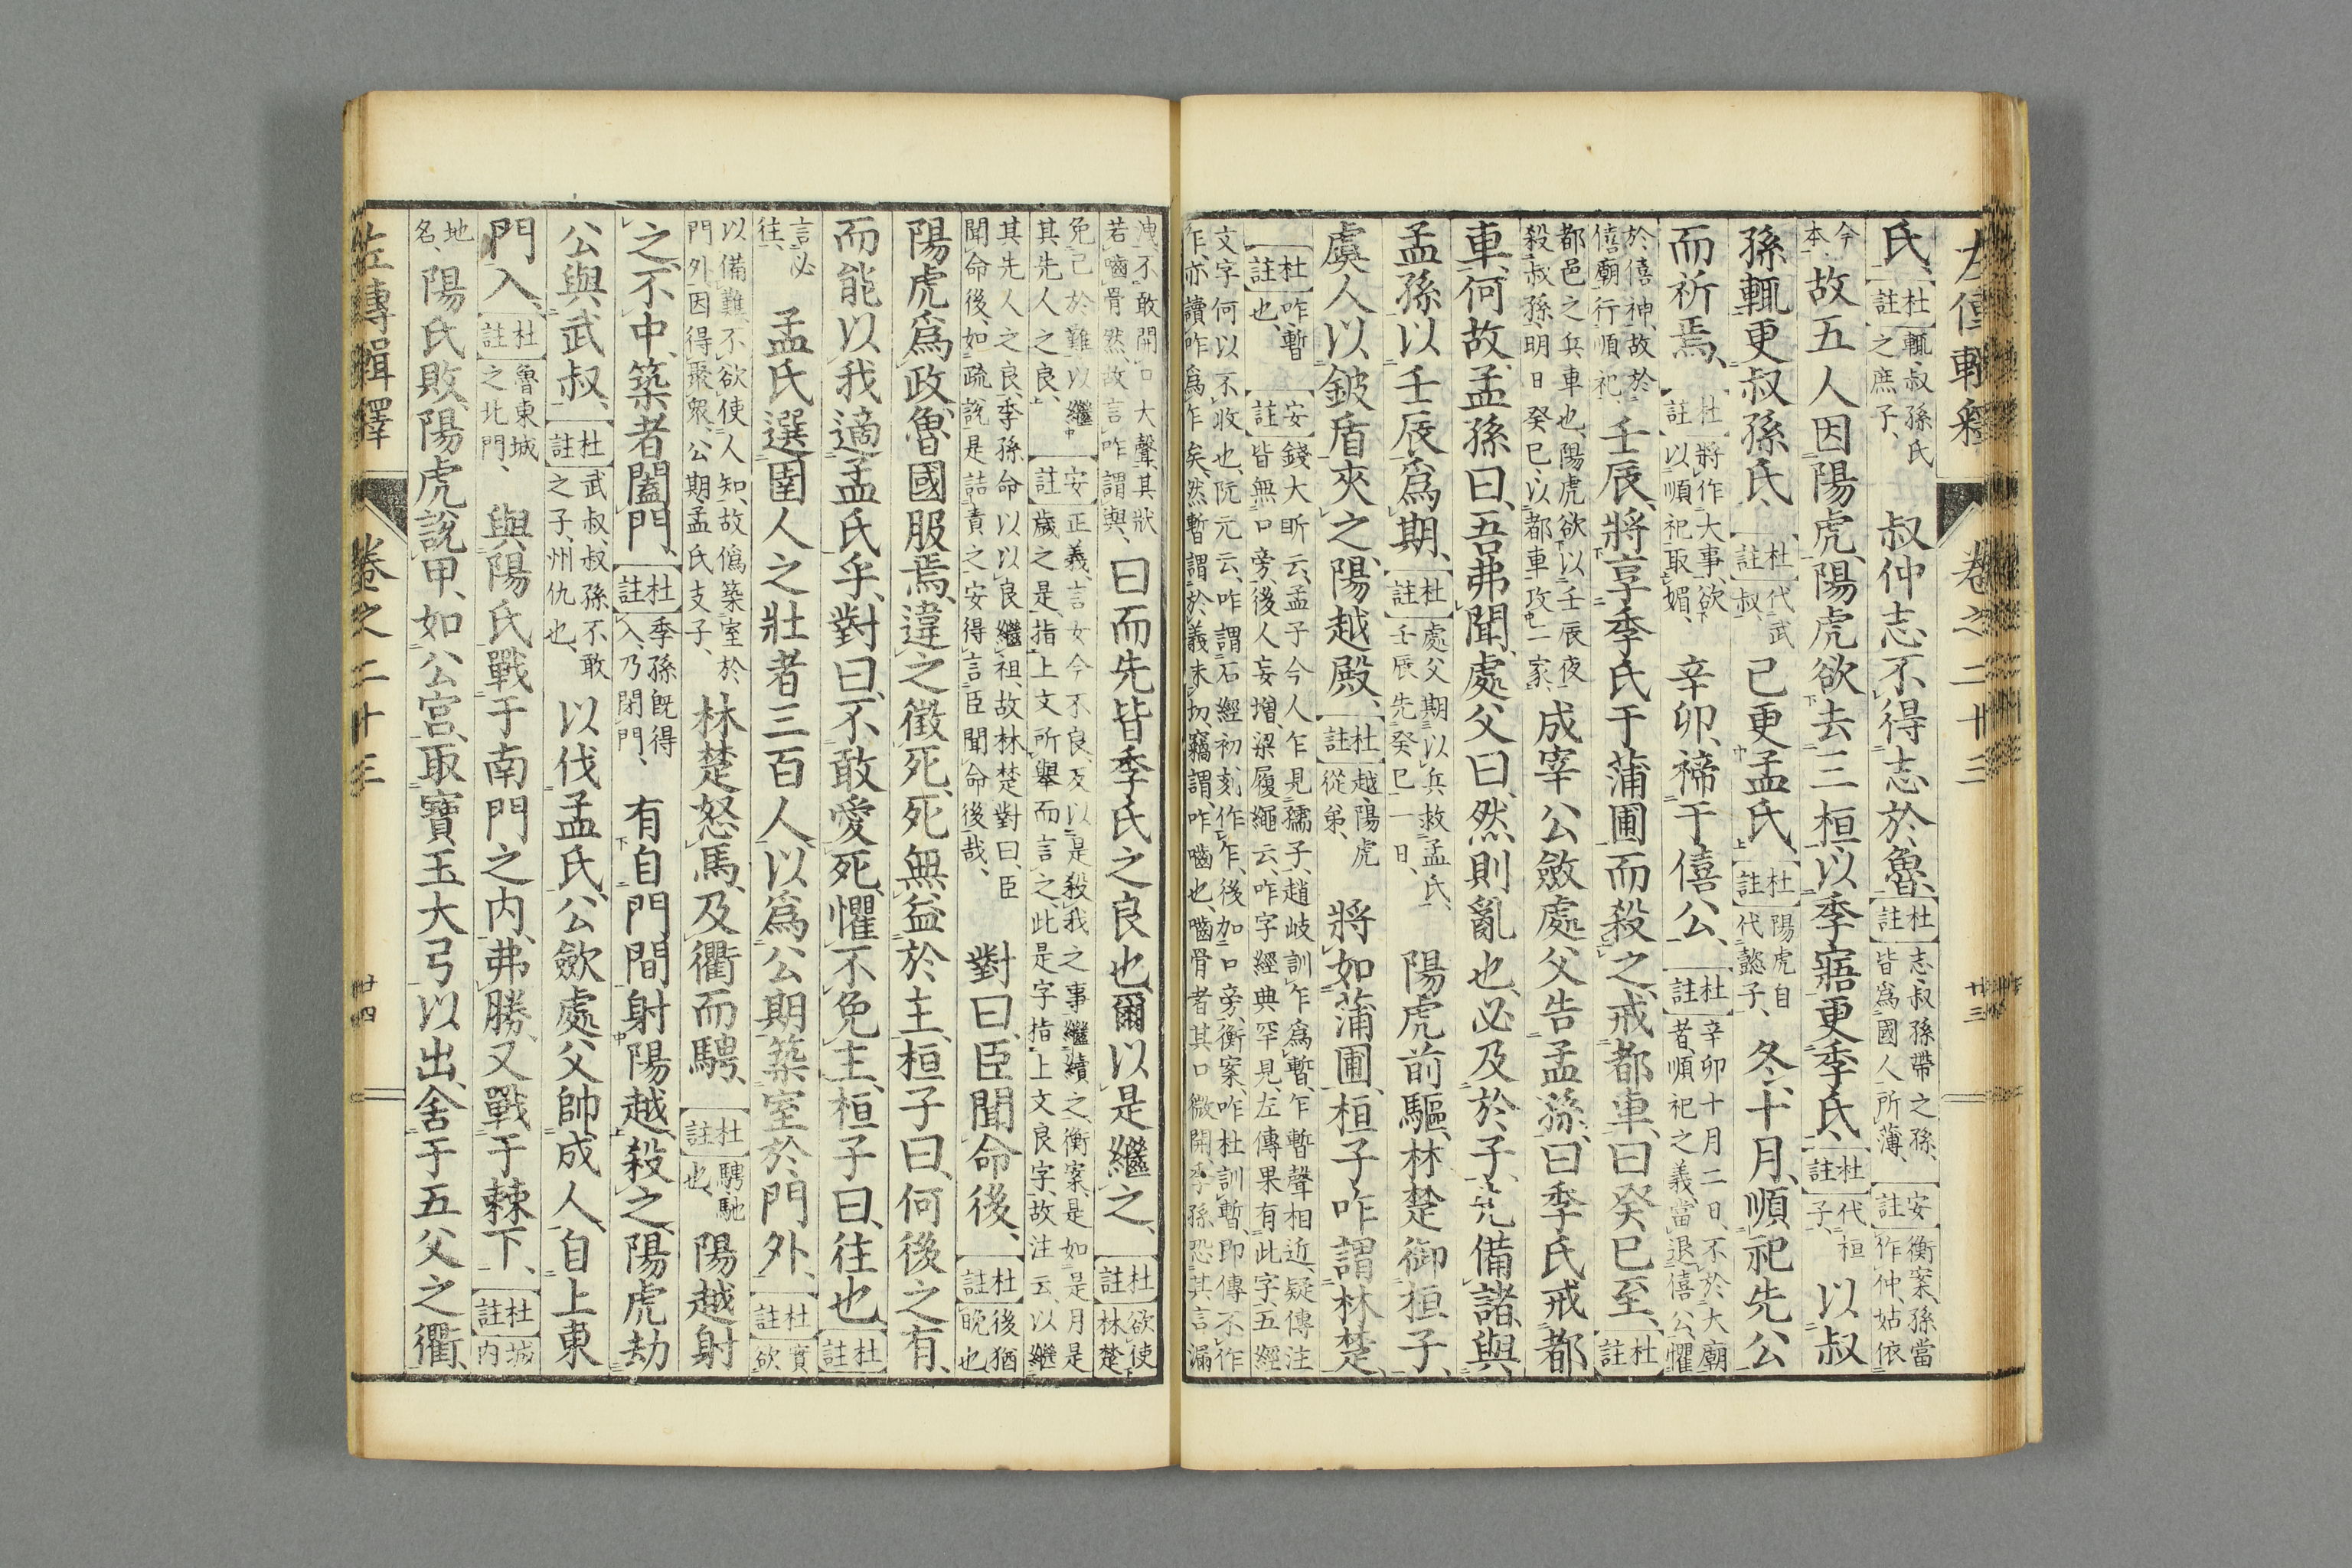 左傳輯釋 卷之二十三 廿三
氏、【杜註】輒、叔孫氏之庶子、叔仲志不得志於魯、【杜註】志、叔孫帶之孫、皆爲國人所薄、【安註】衡案、孫當作仲、姑依
今本、故五人因陽虎、陽虎欲去三桓、以季寤更季氏、【杜註】代桓子、以叔
孫輒更叔孫氏、【杜註】代武叔、己更孟氏、【杜註】陽虎自代懿子、冬、十月、順祀先公
而祈焉、【杜註】將作大事、欲以順祀取媚、辛卯、禘于僖公、【杜註】辛卯十月二日、不於大廟者、順祀之義、當退僖公、懼
於僖神、故於僖廟行順祀、壬辰、將享季氏于蒲圃而殺之、戒都車、曰癸巳至、【杜註】
都邑之兵車也、陽虎欲以壬辰夜殺叔孫、明日癸巳、以都車攻二家、成宰公斂處父告孟孫、曰季氏戒都
車、何故、孟孫曰、吾弗聞、處父曰、然則亂也、必及於子、先備諸、與
孟孫以壬辰爲期、【杜註】處父期以兵救孟氏、壬辰先癸巳一日、陽虎前驅、林楚御桓子、
虞人以鈹盾夾之、陽越殿、【杜註】越、陽虎從弟、將如蒲圃、桓子咋謂林楚、
【杜註】咋、暫也、【安註】錢大昕云、孟子今人乍見孺子、趙岐訓乍爲暫、乍暫聲相近、疑傳注皆無口旁、後人妄增、梁履繩云、咋字經典罕見、左傳果有此字、五經
文字何以不收也、阮元云、咋謂、石經初刻作乍、後加口旁、衡案、咋杜訓暫、即傳不作乍、亦讀咋爲乍矣、然暫謂於義未切、竊謂、咋嚙也、嚙骨者其口微開、季孫恐其言漏
洩、不敢開口大聲、其狀若嚙骨然、故言咋謂與、曰而先皆季氏之良也、爾以是繼之、【杜註】欲使林楚
免己於難、以繼其先人之良、【安註】正義、言女今不良、反以是殺我之事繼續之、衡案、是如是月是歲之是、指上文所舉而言之、此是字指上文良字、故注云、以繼
其先人之良、季孫命以以良繼祖、故林楚對曰、臣聞命後、如疏說、是詰責之、安得言臣聞命後哉、對曰、臣聞命後、【杜註】後猶晚也
陽虎爲政、魯國服焉、違之徵死、死無益於主、桓子曰、何後之有、
而能以我適孟氏乎、對曰、不敢愛死、懼不免主、桓子曰、往也、【杜註】
言必往、孟氏選圉人之壯者三百人、以爲公期築室於門外、【杜註】實欲
以備難、不欲使人知、故僞築室於門外、因得聚衆、公期、孟氏支子、林楚怒馬、及衢而騁、【杜註】騁、馳也、陽越射
之、不中、築者闔門、【杜註】季孫既得入、乃閉門、有自門間射陽越、殺之、陽虎劫
公與武叔、【杜註】武叔、叔孫不敢之子、州仇也、以伐孟氏、公斂處父帥成人、自上東
門入、【杜註】魯東城之北門、與陽氏戰于南門之内、弗勝、又戰于棘下、【杜註】城内
地名、陽氏敗、陽虎說甲、如公宮、取寶玉大弓以出、舍于五父之衢、
左傳輯釋 卷之二十三 廿四